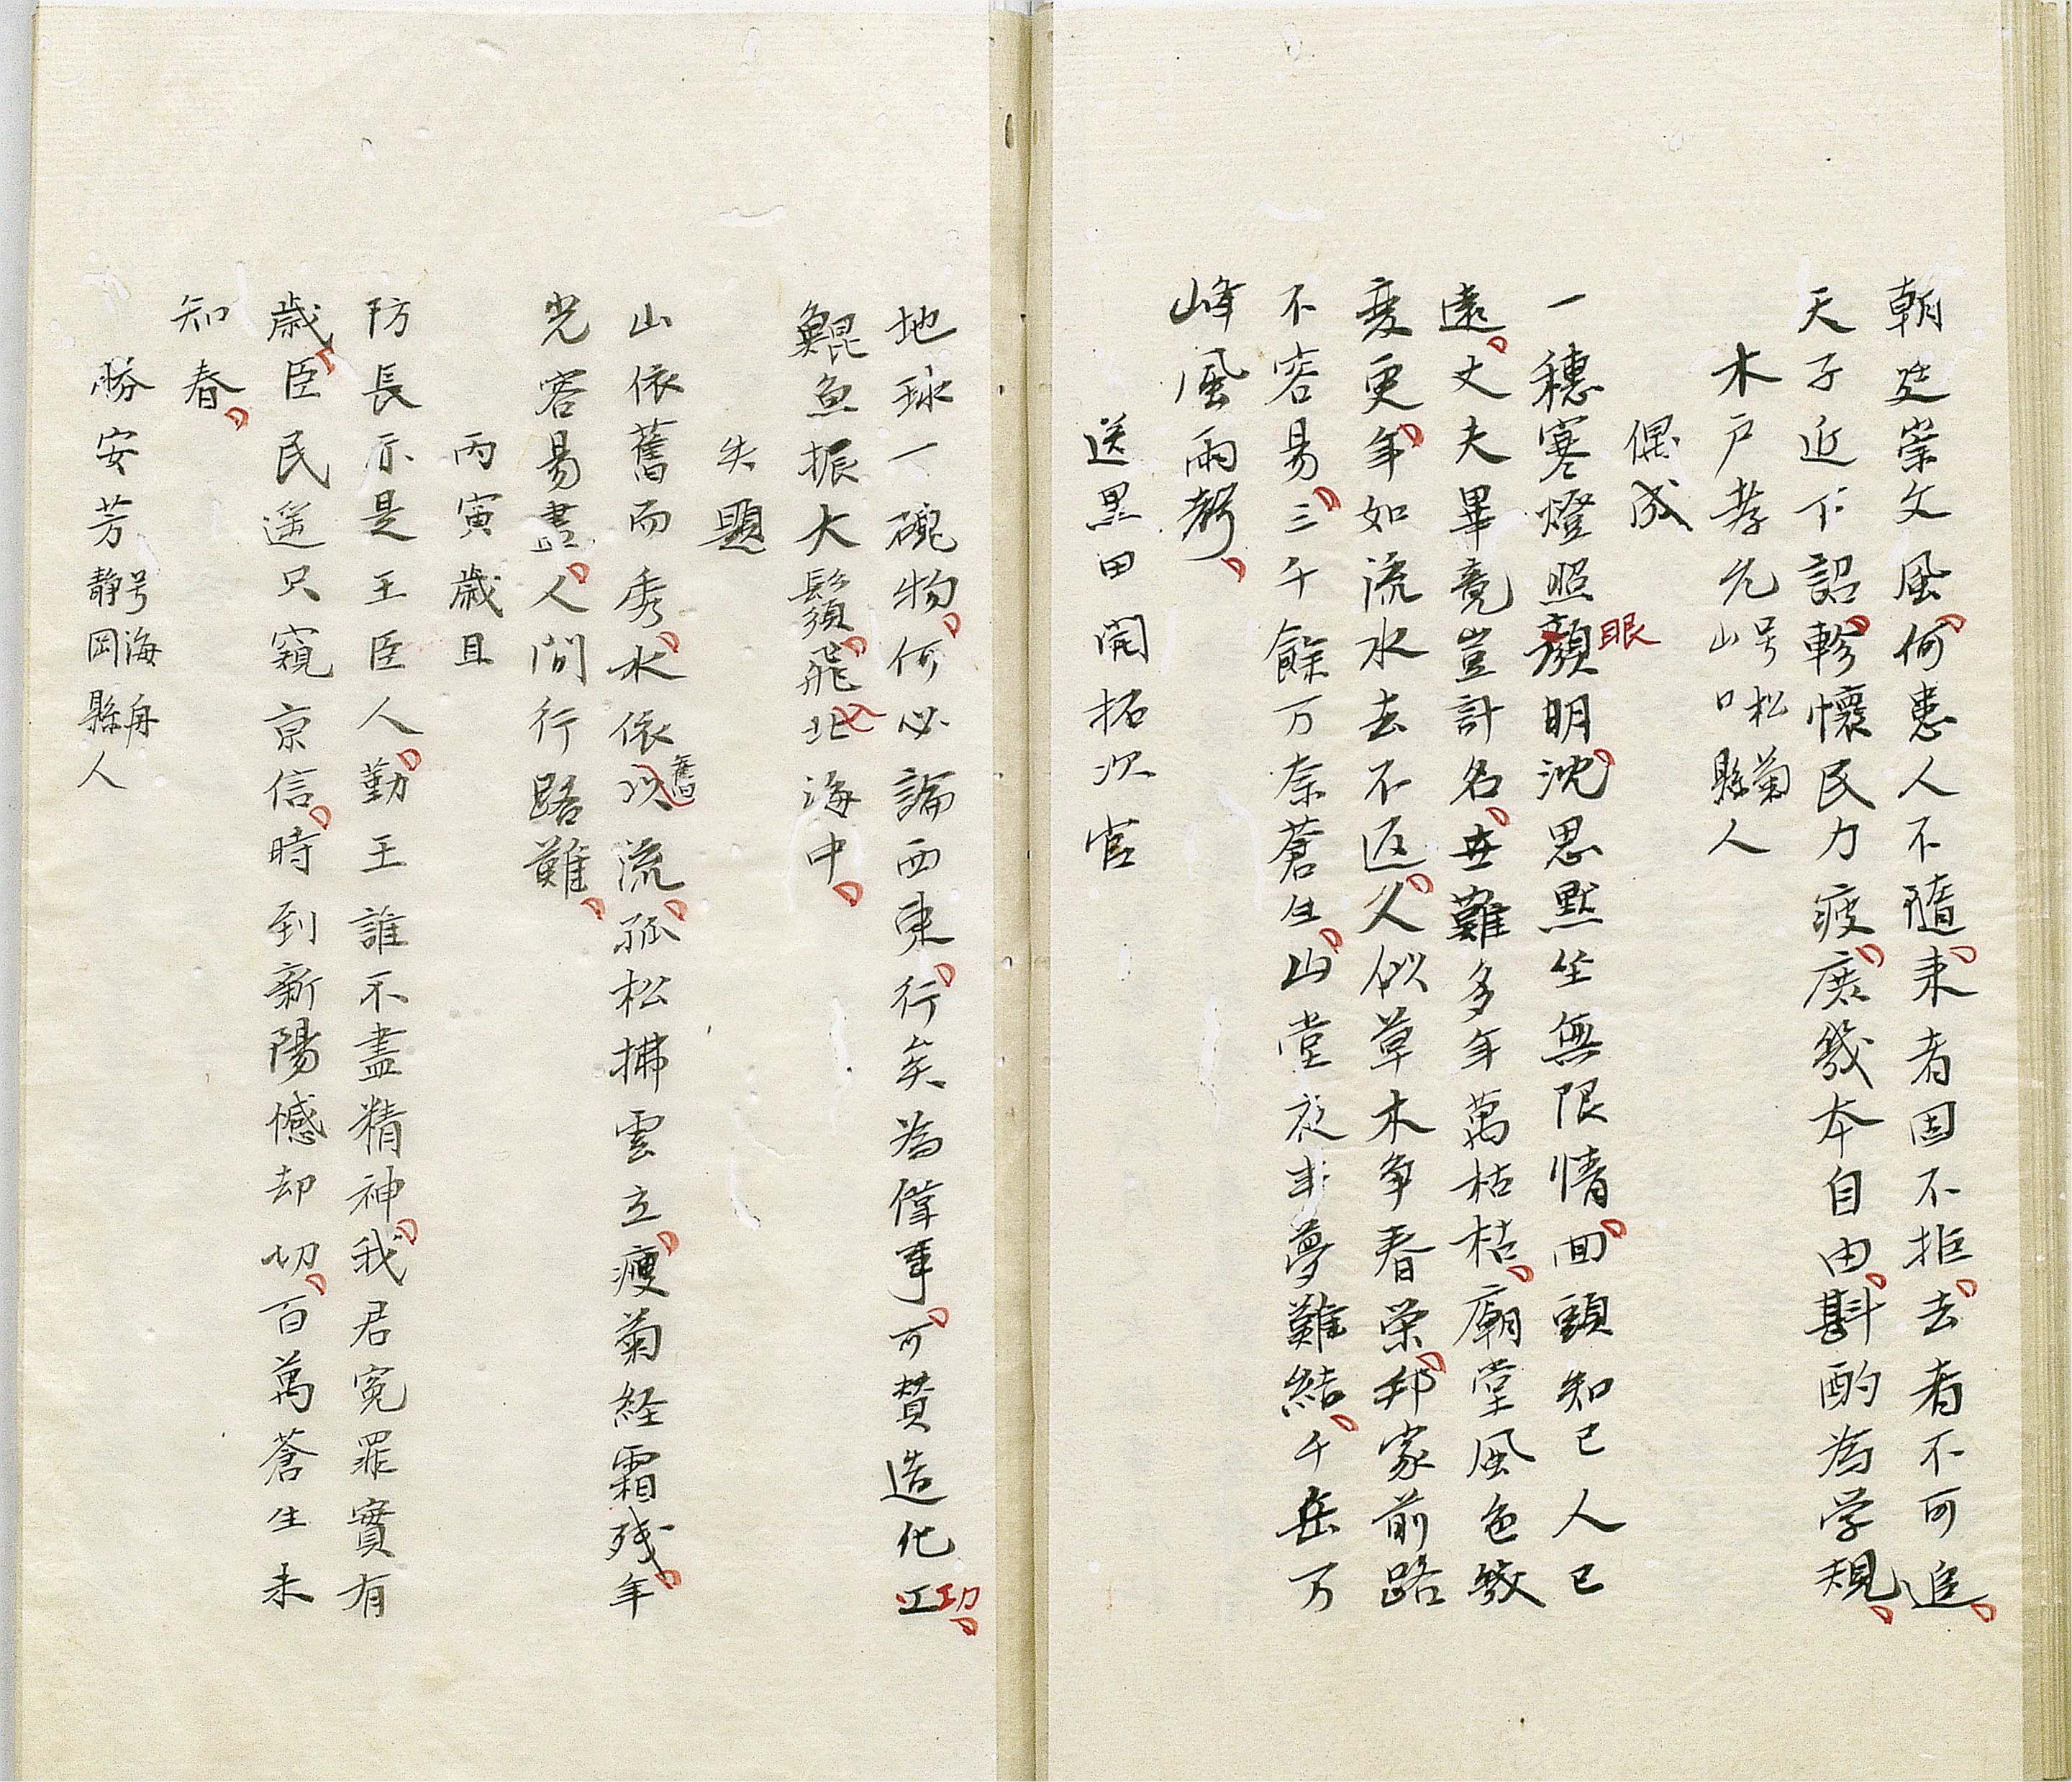 朝廷崇文風何患人不隨来者固不拒去者不可追
天子近下詔軫懷民力疲庶幾本自由斟酌為学規
木戸孝允号松菊山口縣人
偶成
一穗寒燈照顏眼明沈思默坐無限情回頭知己人已
遠丈夫畢竟豈計名世難多年萬枯枯廟堂風色幾
変更年如流水去不返人似草木争春栄邦家前路
不容易三千餘万奈蒼生山堂夜半夢難結千岳万
峰風雨聲
送黒田開拓次官
地球一磈物何必論西東行矣為偉事可賛造化工功
鯤魚振大鬚飛北海中
失題
山依舊而秀水依舊以流孤松拂雲立瘦菊経霜残年
光容易盡人間行路難
丙寅歳旦
防長示是王臣人勤王誰不盡精神我君冤罪實有
歳臣民遥只窺京信時到新陽憾却切百萬蒼生未
知春
勝安芳号海舟静岡縣人